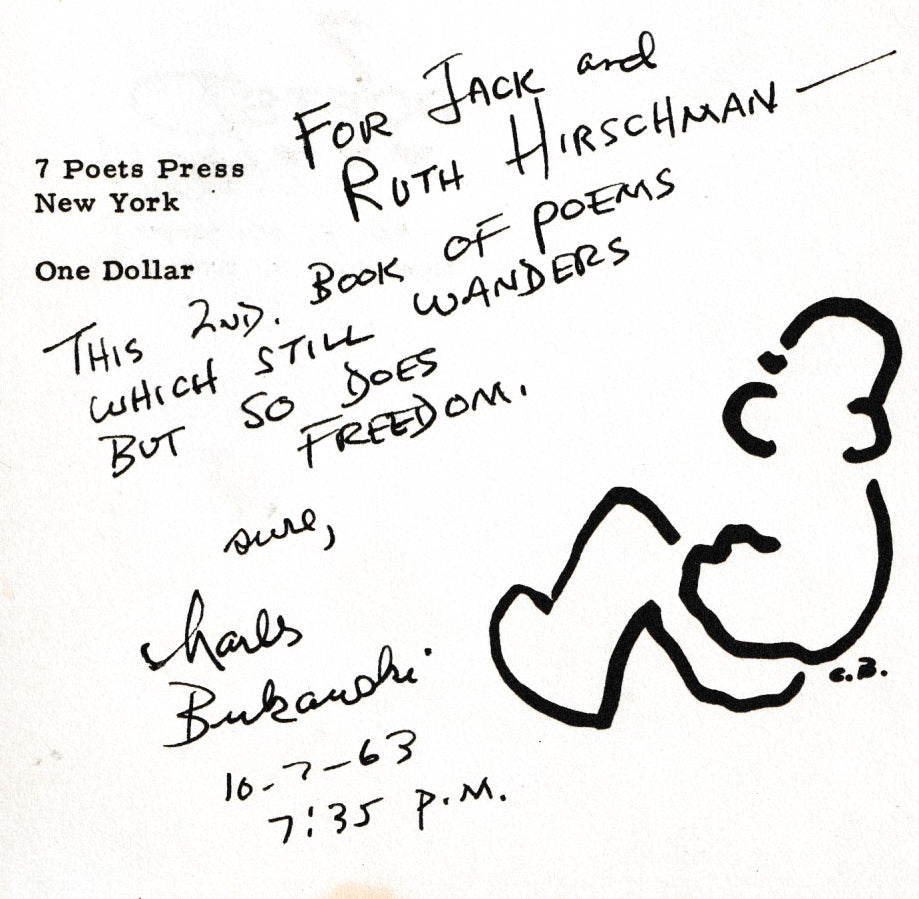 FOR JACK and
RUTH HIRSCHMAN —
7 Poets Press
New York
One Dollar
THIS 2ND. BOOK OF POEMS
WHICH STILL WANDERS
BUT SO DOES
FREEDOM.
sure,
Charles
Bukowski
10-7-63
7:35 P.M.
C.B.